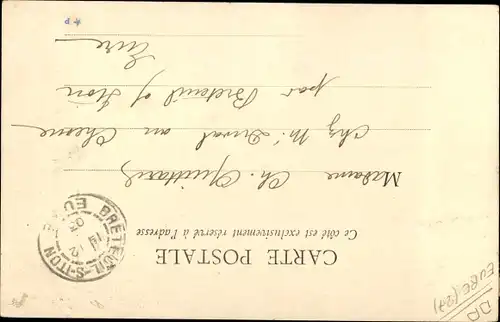 CARTE POSTALE
Ce côté est exclusivement réservé à l'adresse
Madame Ch.
chez Mr Duval au Chesne
par Breteuil s/ Iton
Eure
BRETEUIL-S-ITON EURE
12
05
DP
EURE (27)